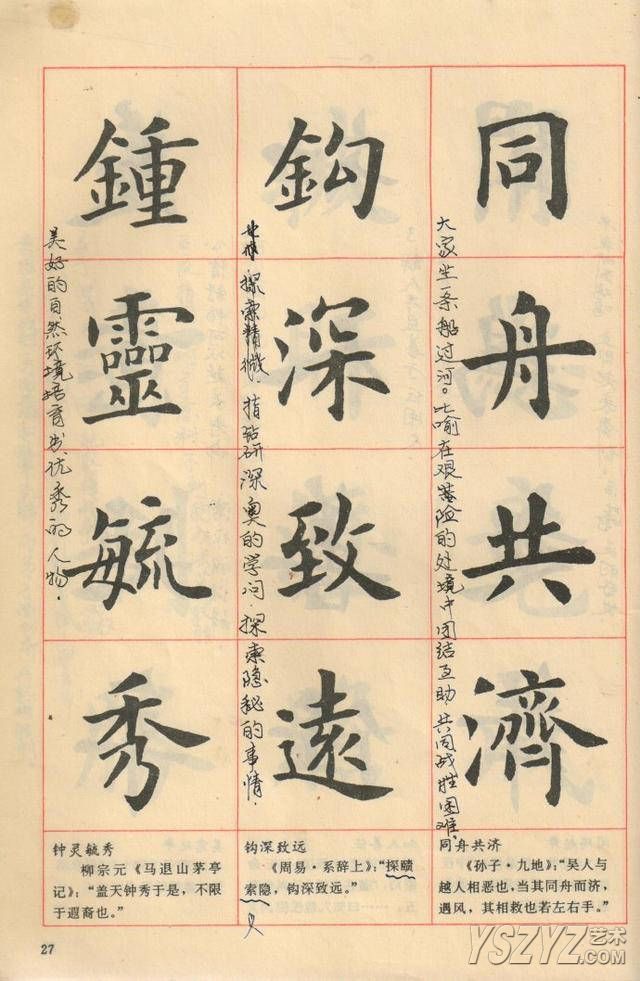 同舟共濟
大家坐一条船过河。比喻在艰险的处境中团结互助,共同战胜困难.
鈎深致遠
探索精微.指钻研深奥的学问,探索隐秘的事情.
鍾靈毓秀
美好的自然环境培育出优秀的人物.
同舟共济
《孙子·九地》:“吴人与
越人相恶也,当其同舟而济,
遇风,其相救也若左右手。”
钩深致远
《周易·系辞上》:“探赜
索隐,钩深致远。”
钟灵毓秀
柳宗元《马退山茅亭
记》:“盖天钟秀于是,不限
于遐裔也。”
27
YSZYZ艺术
.COM